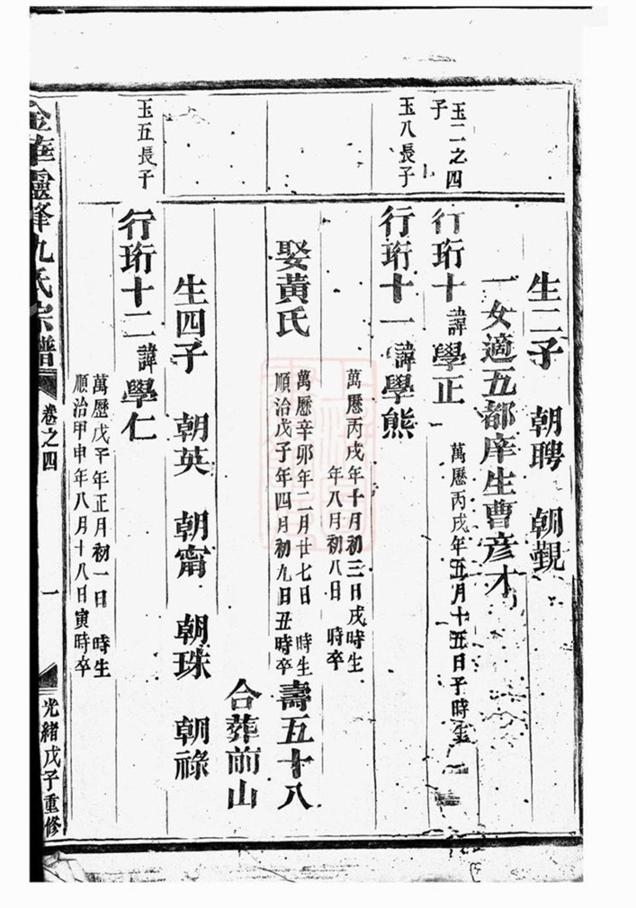 生二子 朝聘 朝覲
一女適五都庠生曹彥才
玉二之四子
行珩十 諱學正 萬曆丙戌年五月十五日子時生
玉八長子
行珩十一 諱學熊
萬曆丙戌年十月初三日戌時生
年八月初八日 時卒
娶黃氏
萬曆辛卯年二月廿七日 時生
順治戊子年四月初九日丑時卒
壽五十八
合葬前山
生四子 朝英 朝甯 朝珠 朝祿
玉五長子
行珩十二 諱學仁
萬曆戊子年正月初一日 時生
順治甲申年八月十八日寅時卒
金華靈峰仇氏宗譜 卷之四 一 光緒戊子重修